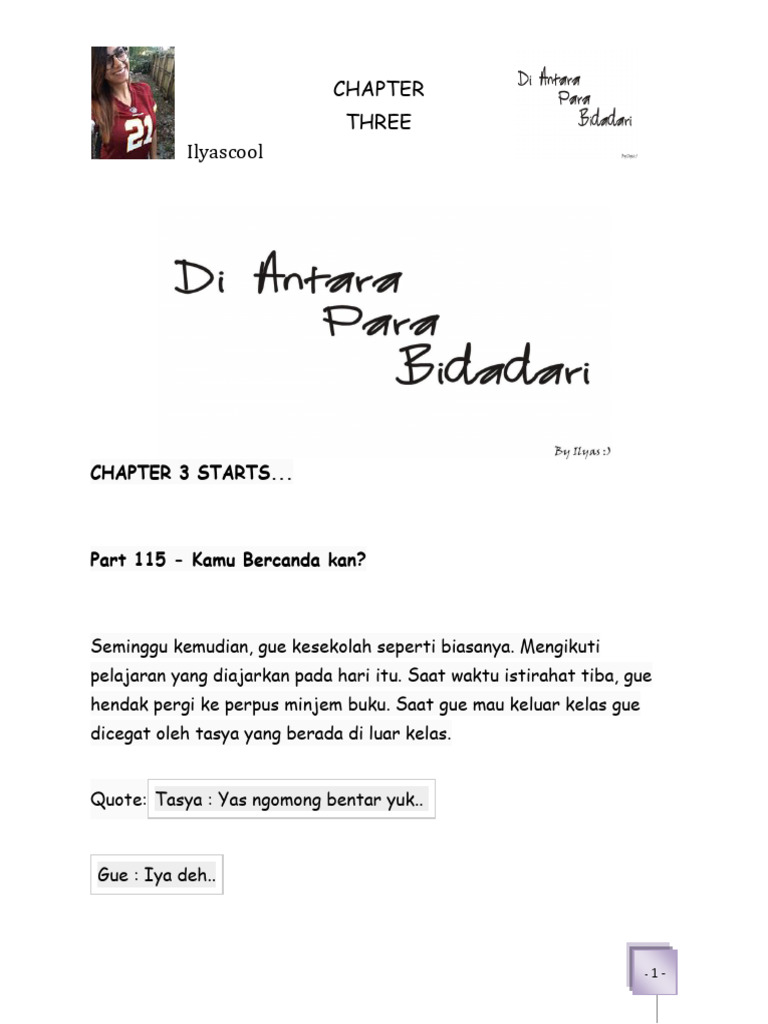 CHAPTER
THREE
Di Antara
Para
Bidadari
21
Ilyascool
Di Antara
Para
Bidadari
By Ilyas :)
CHAPTER 3 STARTS...
Part 115 - Kamu Bercanda kan?
Seminggu kemudian, gue kesekolah seperti biasanya. Mengikuti
pelajaran yang diajarkan pada hari itu. Saat waktu istirahat tiba, gue
hendak pergi ke perpus minjem buku. Saat gue mau keluar kelas gue
dicegat oleh tasya yang berada di luar kelas.
Quote: Tasya : Yas ngomong bentar yuk..
Gue : Iya deh..
- 1 -